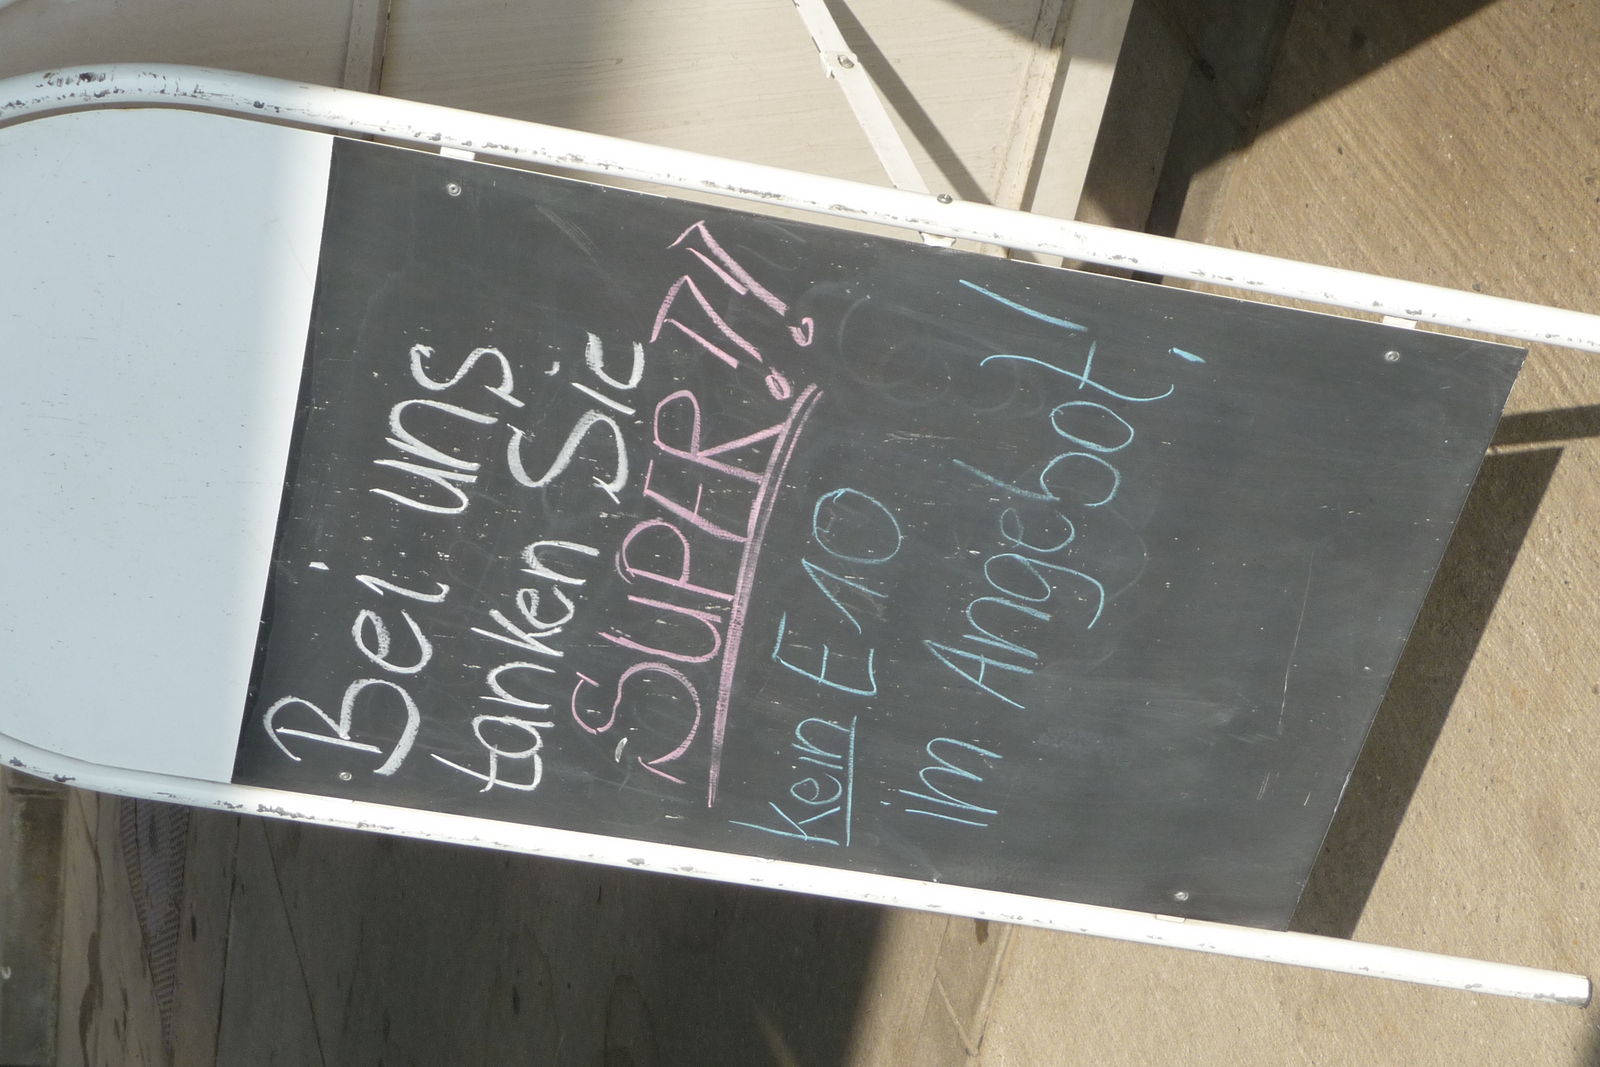 Bei uns
tanken Sie
"SUPER"!!
kein E10
im Angebot!